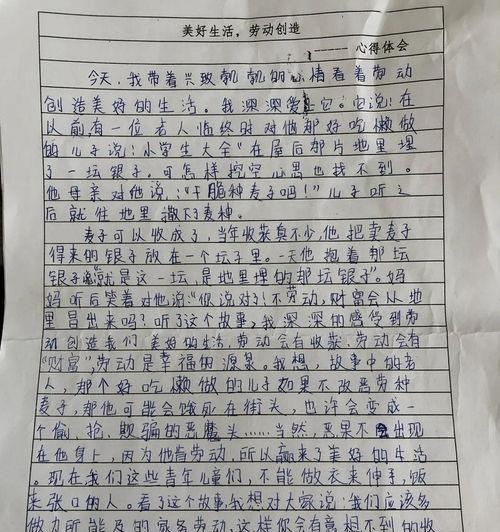 美好生活,劳动创造
------心得体会
今天,我带着兴致勃勃的心情看着劳动
创造美好的生活。我深深爱上它。它说:在
以前有一位老人临终时对他那好吃懒做
的儿子说:小学生大全“在屋后那片地里埋
了一坛银子。可怎样挖空心思也找不到。
他母亲对他说:“干脆种麦子吧!”儿子听之
后就往地里撒下麦种。
麦子可以收成了,当年收获真不少,他把卖麦子
得来的银子放在一个坛子里。一天他抱着那坛
银子就是这一坛,是地里埋的那坛银子”。妈
妈听后笑着对他说:“你说对了!不劳动,财富会从地
里冒出来吗?听了这个故事,我深深的感受到劳
动创造我们美好的生活,劳动会有收获,劳动会有
“财富”,劳动是幸福的源泉。我想,故事中的老
人,那个好吃懒做的儿子如果不故意劳动种
麦子,那他可能会饿死在街头,也许会变成一
个偷、抢、欺骗的恶魔头……当然,恶果不会出现
在他身上,因为他肯劳动,所以赢来了美好的生活
。现在我们这些青年儿童们,不能做衣来伸手,饭
来张口的人。看了这个故事,我想对大家说:我们应该多
做力所能及的家务劳动,这样你会有意想不到的收